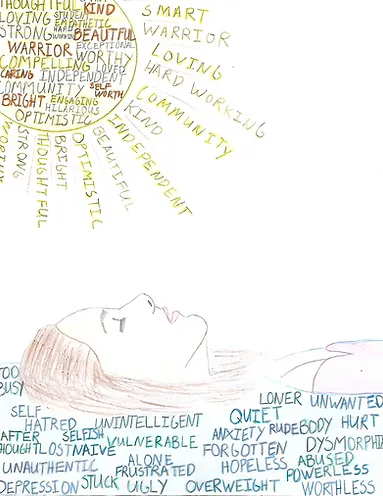 THOUGHTFUL KIND
LOVING STUDENT
EMPATHETIC
STRONG HARD WORKING BEAUTIFUL
WARRIOR EXCEPTIONAL
COMPELLING WORTHY
CARING INDEPENDENT LOVER
COMMUNITY SELF WORTH
BRIGHT ENGAGING
HILARIOUS
OPTIMISTIC
SMART
WARRIOR
LOVING
HARD WORKING
COMMUNITY
KIND
INDEPENDENT
BEAUTIFUL
OPTIMISTIC
BRIGHT
THOUGHTFUL
STRONG
WORTHY
TOO BUSY
LONER UNWANTED
SELF HATRED UNINTELLIGENT QUIET BODY HURT
AFTER THOUGHT SELFISH VULNERABLE ANXIETY RUDE DYSMORPHIA
LOST NAIVE FORGOTTEN ABUSED
UNAUTHENTIC ALONE HOPELESS POWERLESS
FRUSTRATED
DEPRESSION STUCK UGLY OVERWEIGHT WORTHLESS